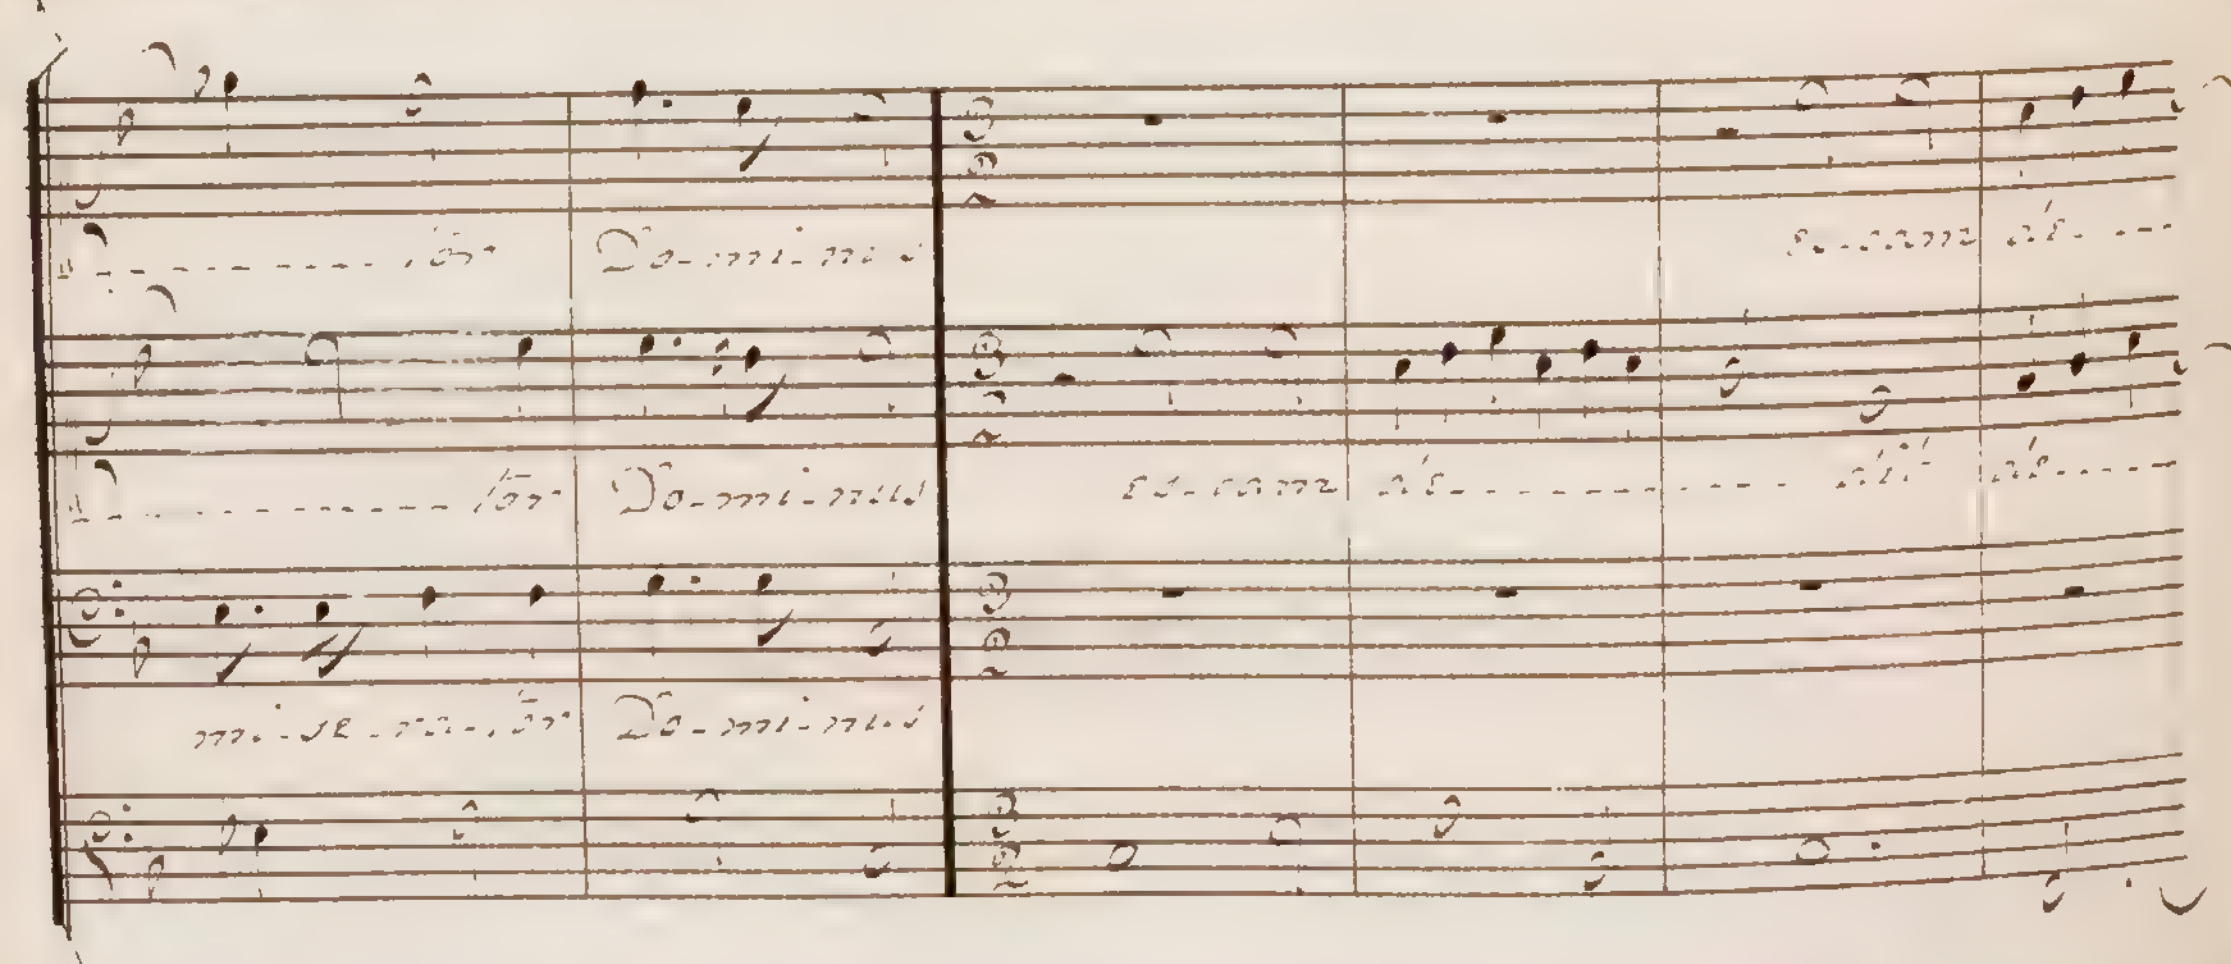 tor Do-mi-nus escam de- - -
tor Do-mi-nus es-cam de- - - - - - - dit de- - - -
mi-se-ra-tor Do-mi-nus